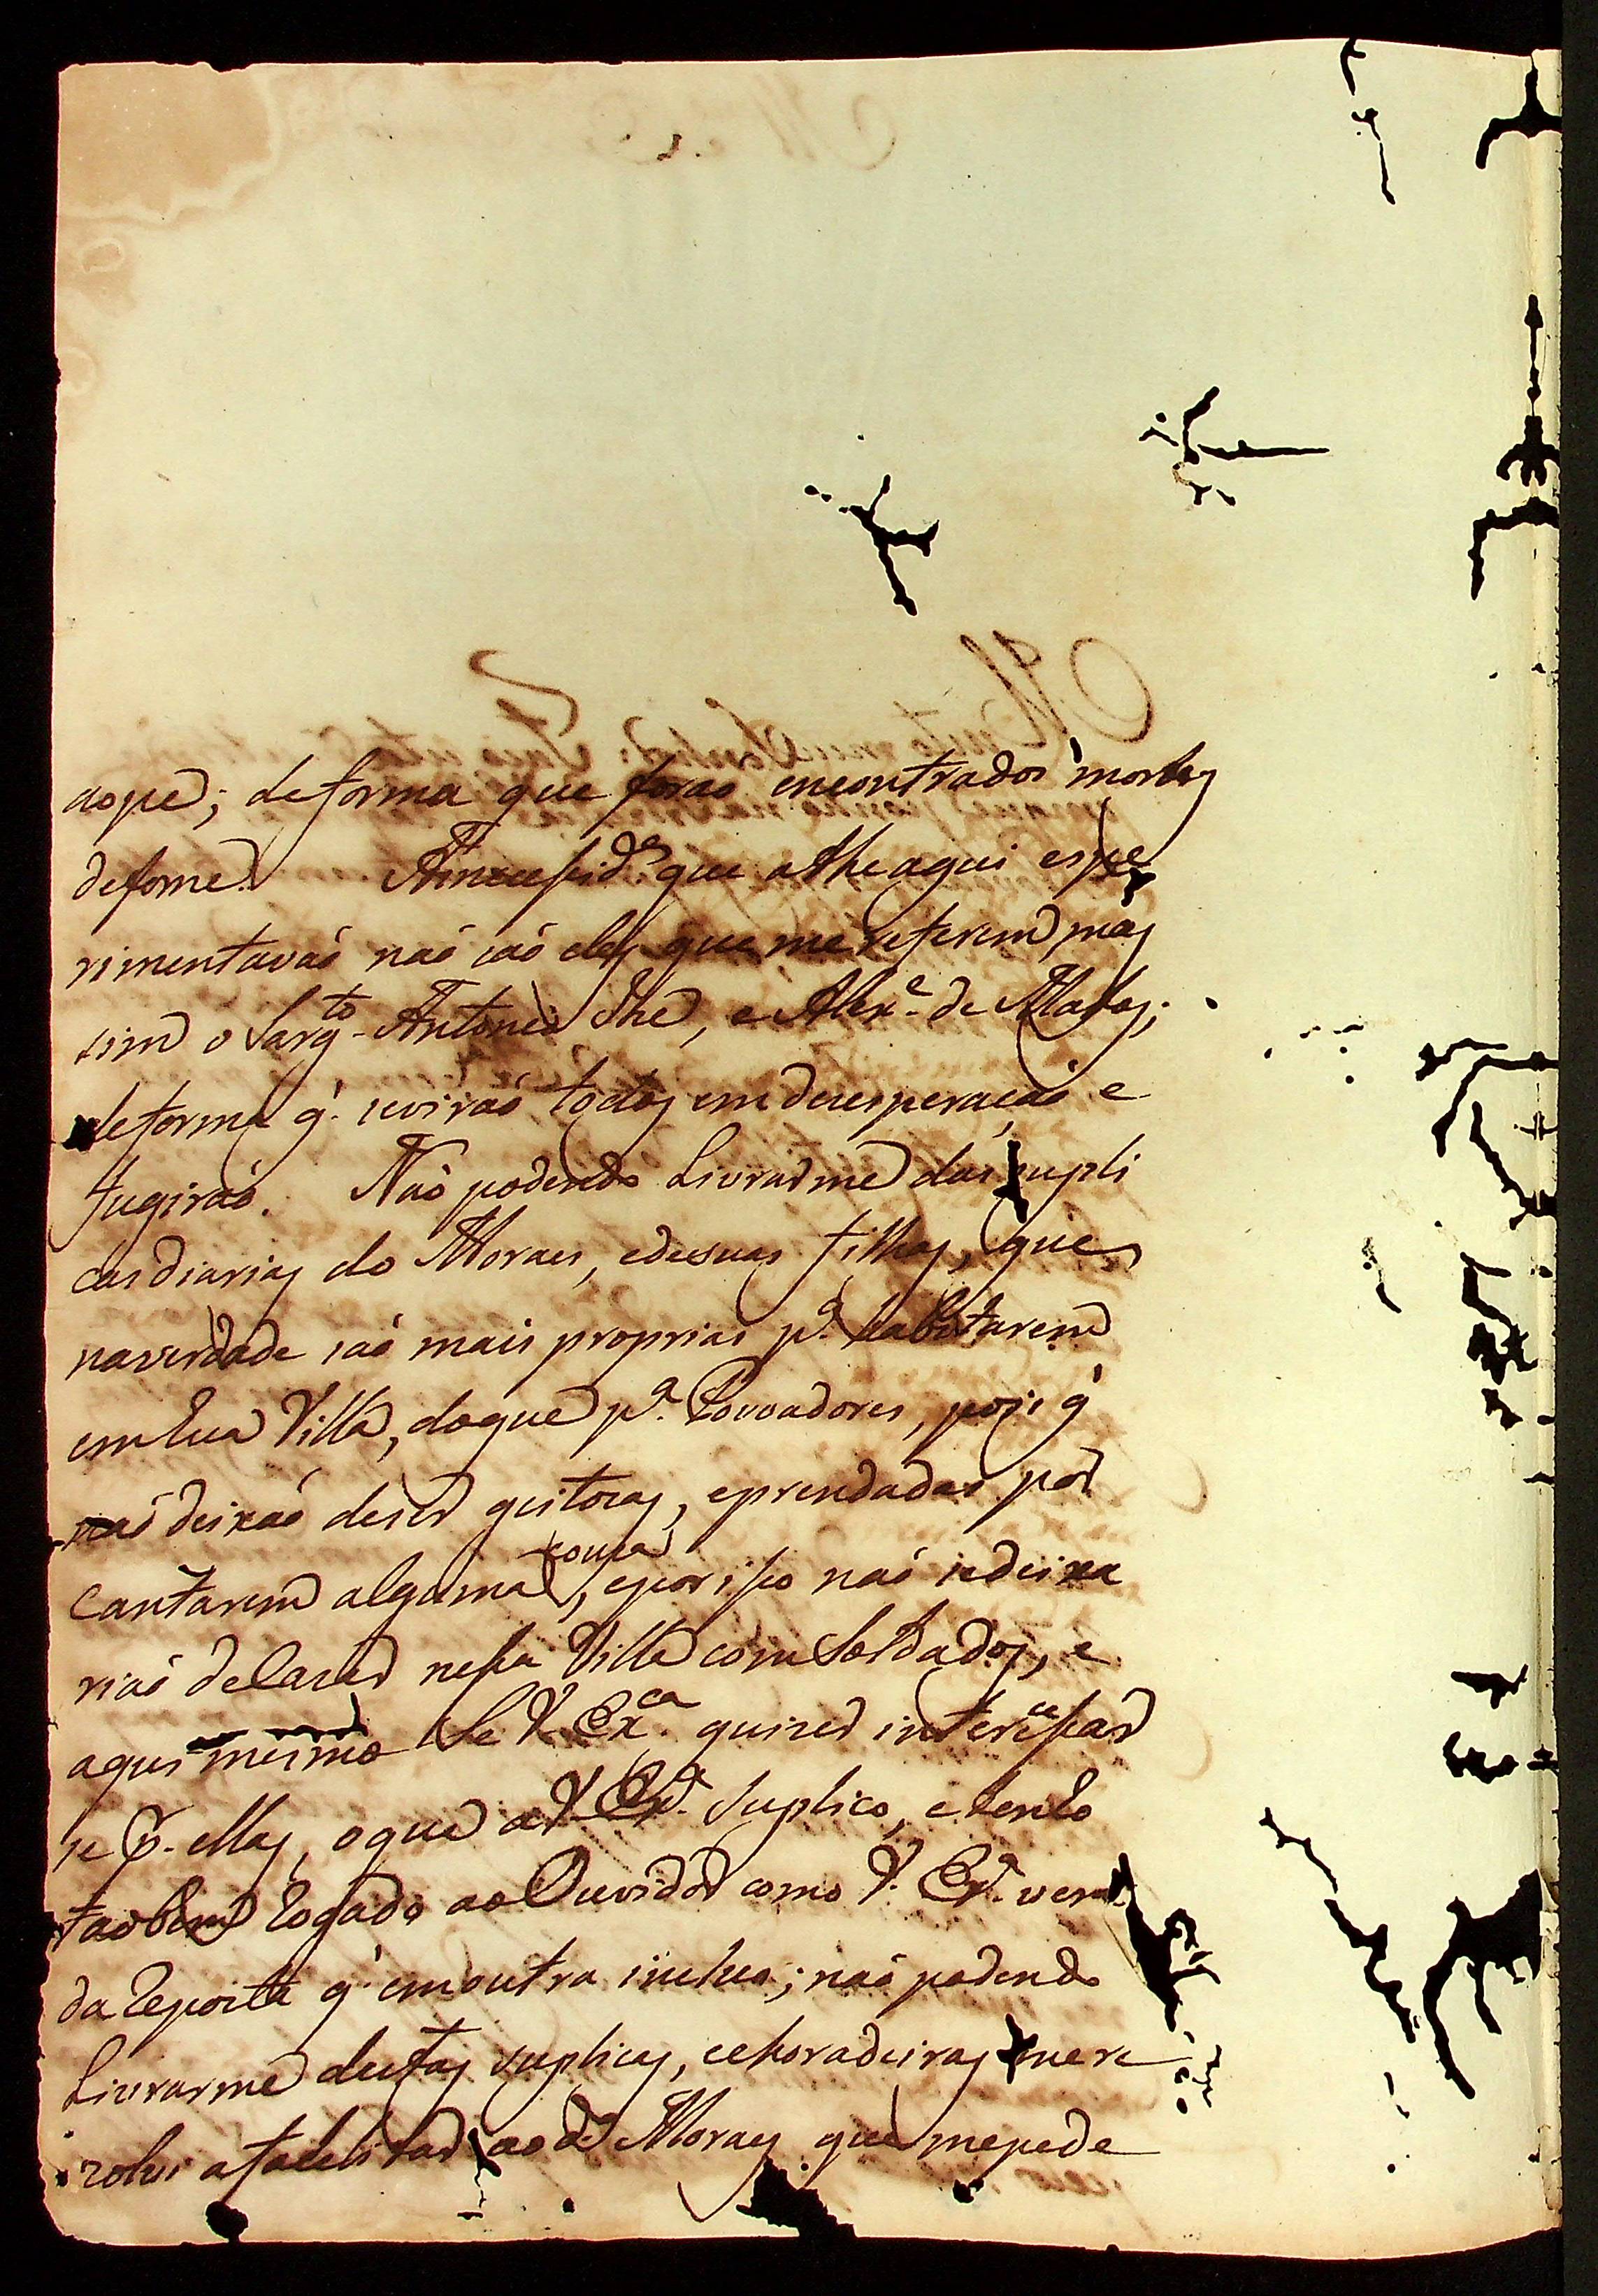 aope; deforma que forao encontrados mortos
defome. Anecessid.e que atheaqui espe
rimentavaó naó saó eles que mereferem mas
sim o Sarg.to Antonio Jhe, e Alex.e de Matos;
deforma q.' seviraó todos emdesesperaçaó e
fugiraó. Naó podendo Livrarme das supli
cas diarias do Moraes, edesuas filhas, que
naverdade saó mais proprias p.a habitarem
emhua Villa, doque p.a Povoadores, pois q'
naó deixaó deser geitozas, eprendadas por
Cantarem alguma couza, eporisso naó sedeixa
riaó deCazar nessa Villa com Soldados, e
aqui mesmo Se V. Ex.ca quizer interessar
se p. ellas, oque a V. Ex.a Suplico, e tenho
taobem Rogado ao Ouvidor como V. Ex.a vera
da Reposta q.' emoutra incluo; naó podendo
Livrarme destas suplicas, echoradeiras mere
zolvi afacelitar ao d.o Moraes que mepede